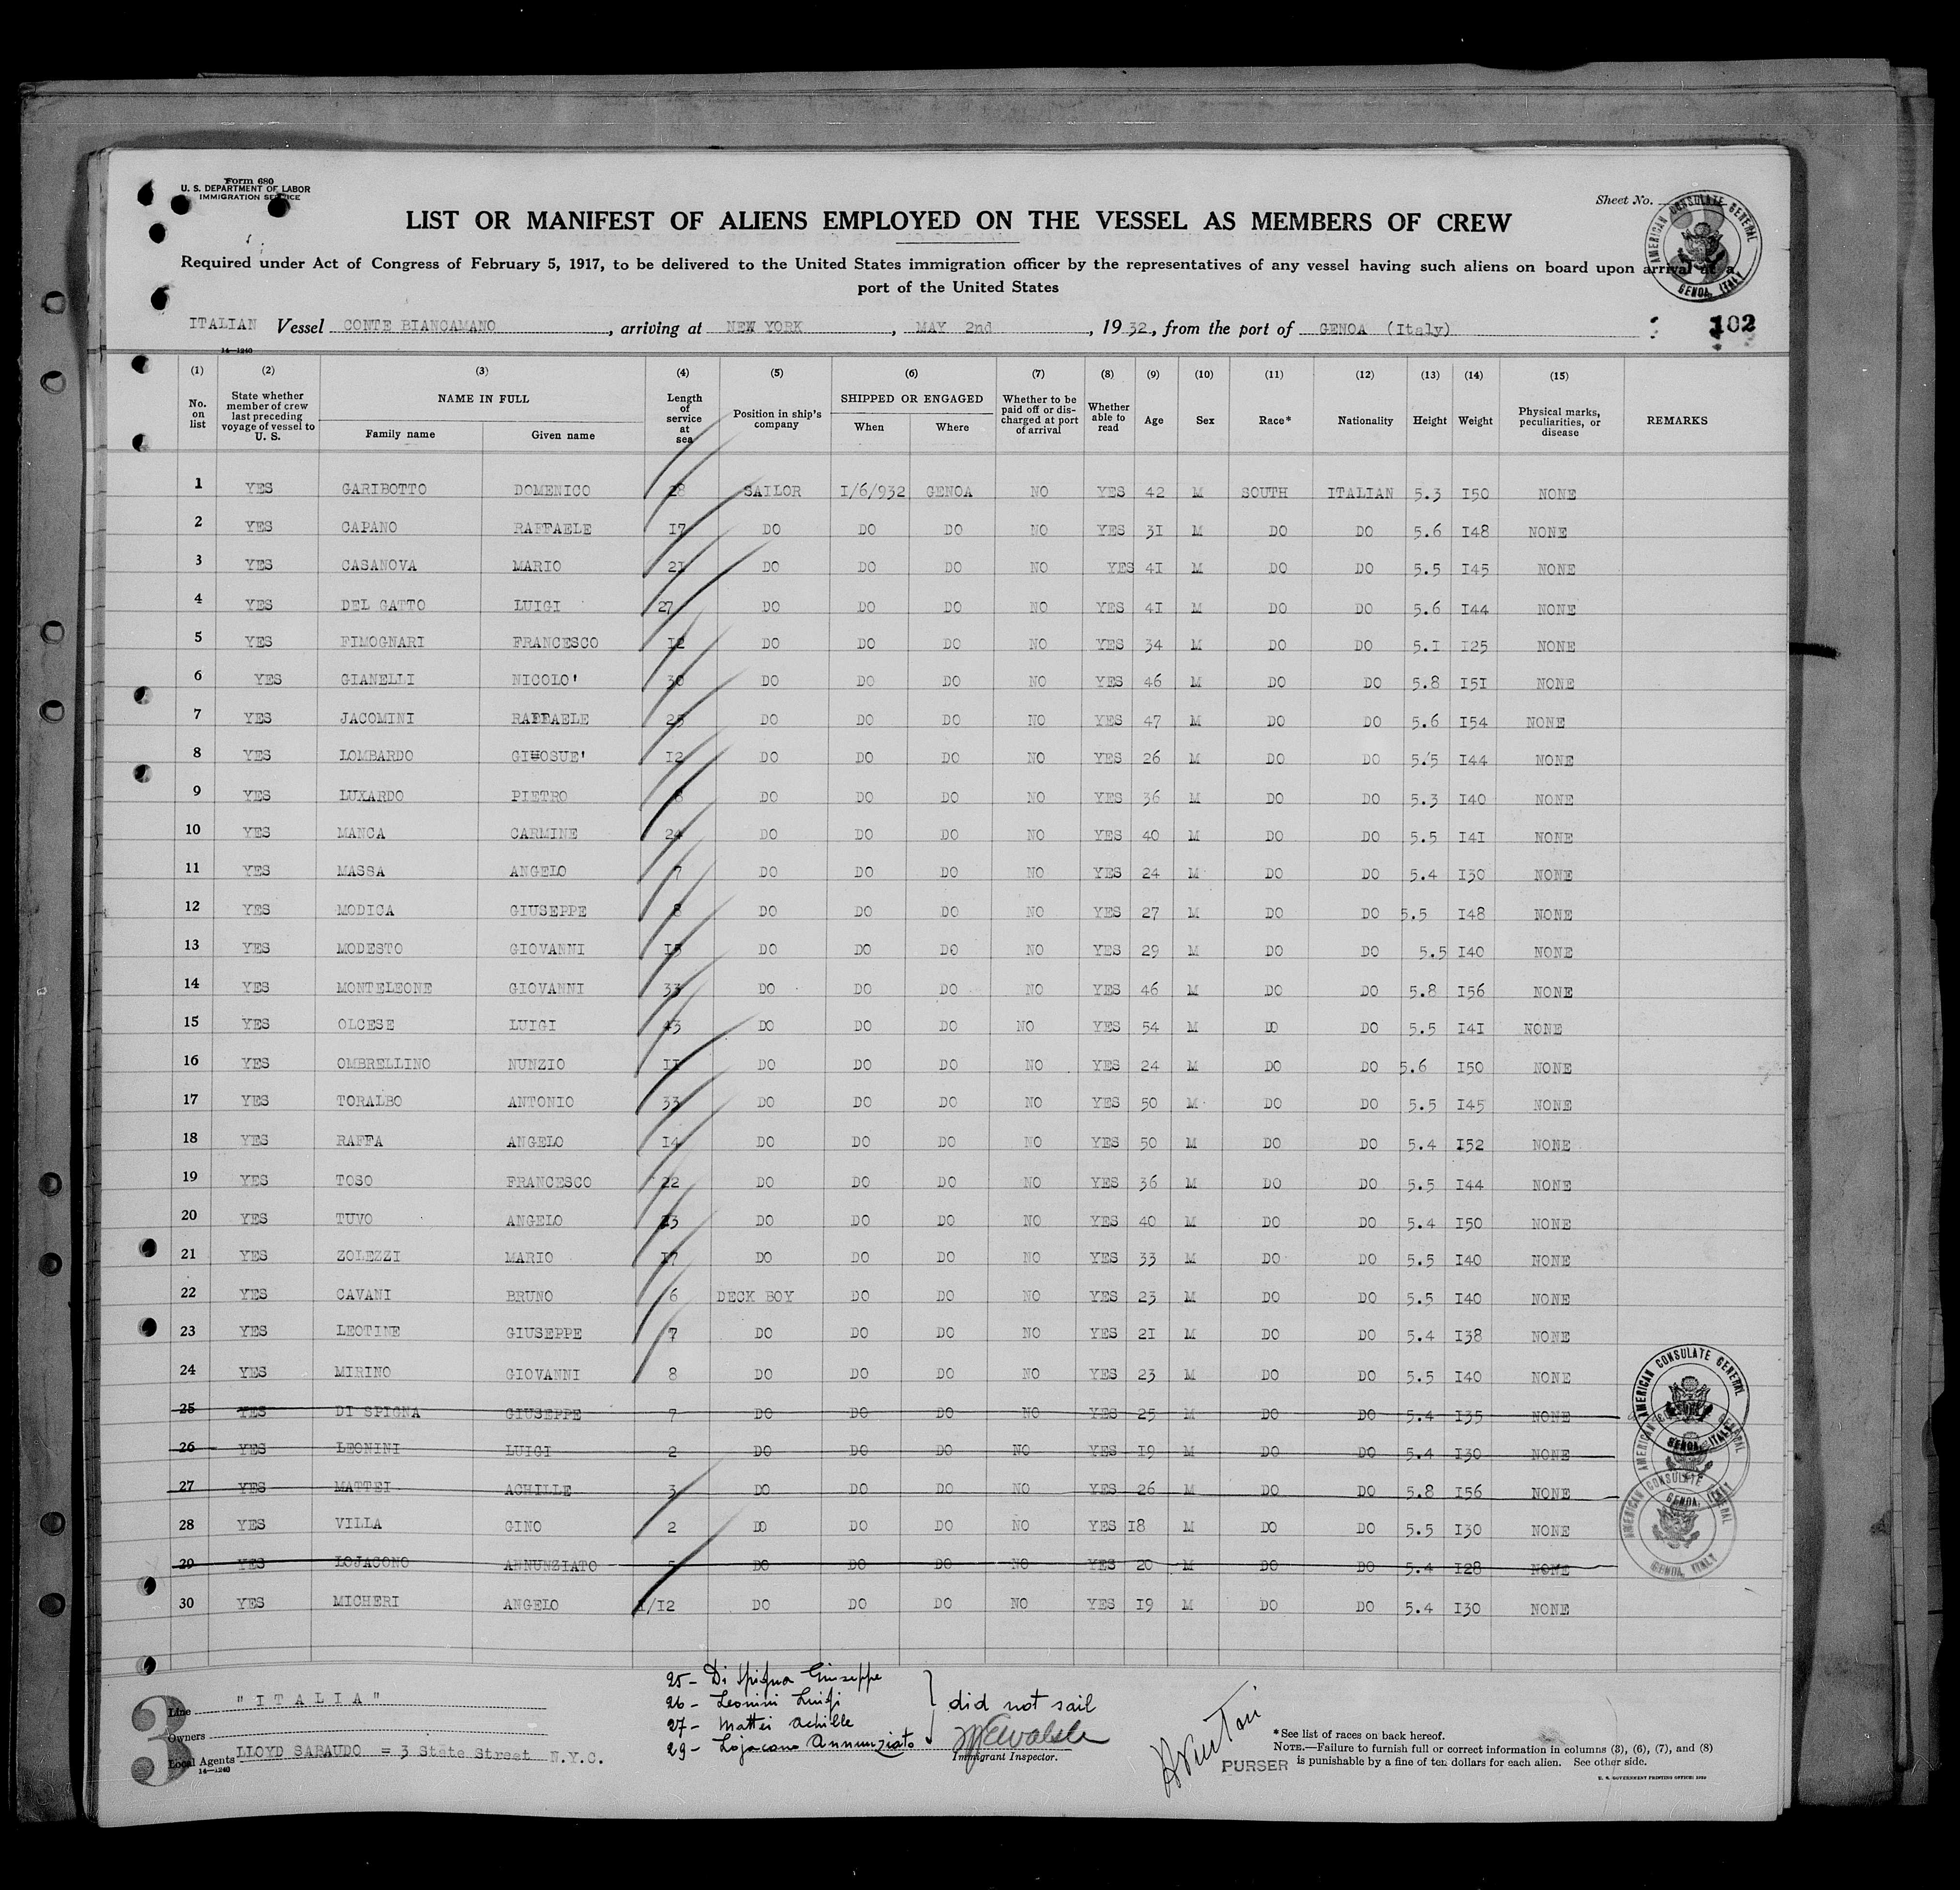 Form 680
U. S. DEPARTMENT OF LABOR
IMMIGRATION SERVICE
Sheet No.
AMERICAN CONSULATE GENERAL GENOA, ITALY
LIST OR MANIFEST OF ALIENS EMPLOYED ON THE VESSEL AS MEMBERS OF CREW
Required under Act of Congress of February 5, 1917, to be delivered to the United States immigration officer by the representatives of any vessel having such aliens on board upon arrival at a
port of the United States
ITALIAN Vessel CONTE BIANCAMANO, arriving at NEW YORK, MAY 2nd, 1932, from the port of GENOA (Italy) 102
14—1240
(1) (2) (3) (4) (5) (6) (7) (8) (9) (10) (11) (12) (13) (14) (15)
No. on list | State whether member of crew last preceding voyage of vessel to U. S. | NAME IN FULL Family name Given name | Length of service at sea | Position in ship's company | SHIPPED OR ENGAGED When Where | Whether to be paid off or discharged at port of arrival | Whether able to read | Age | Sex | Race* | Nationality | Height | Weight | Physical marks, peculiarities, or disease | REMARKS
1 YES GARIBOTTO DOMENICO 28 SAILOR I/6/932 GENOA NO YES 42 M SOUTH ITALIAN 5.3 I50 NONE
2 YES CAPANO RAFFAELE I7 DO DO DO NO YES 3I M DO DO 5.6 I48 NONE
3 YES CASANOVA MARIO 2I DO DO DO NO YES 4I M DO DO 5.5 I45 NONE
4 YES DEL GATTO LUIGI 27 DO DO DO NO YES 4I M DO DO 5.6 I44 NONE
5 YES FIMOGNARI FRANCESCO I2 DO DO DO NO YES 34 M DO DO 5.I I25 NONE
6 YES GIANELLI NICOLO' 30 DO DO DO NO YES 46 M DO DO 5.8 I5I NONE
7 YES JACOMINI RAFFAELE 25 DO DO DO NO YES 47 M DO DO 5.6 I54 NONE
8 YES LOMBARDO GIUOSUE' I2 DO DO DO NO YES 26 M DO DO 5.5 I44 NONE
9 YES LUXARDO PIETRO 8 DO DO DO NO YES 36 M DO DO 5.3 I40 NONE
10 YES MANCA CARMINE 24 DO DO DO NO YES 40 M DO DO 5.5 I4I NONE
11 YES MASSA ANGELO 7 DO DO DO NO YES 24 M DO DO 5.4 I30 NONE
12 YES MODICA GIUSEPPE 8 DO DO DO NO YES 27 M DO DO 5.5 I48 NONE
13 YES MODESTO GIOVANNI I5 DO DO DO NO YES 29 M DO DO 5.5 I40 NONE
14 YES MONTELEONE GIOVANNI 33 DO DO DO NO YES 46 M DO DO 5.8 I56 NONE
15 YES OLCESE LUIGI 43 DO DO DO NO YES 54 M DO DO 5.5 I4I NONE
16 YES OMBRELLINO NUNZIO II DO DO DO NO YES 24 M DO DO 5.6 I50 NONE
17 YES TORALBO ANTONIO 33 DO DO DO NO YES 50 M DO DO 5.5 I45 NONE
18 YES RAFFA ANGELO I4 DO DO DO NO YES 50 M DO DO 5.4 I52 NONE
19 YES TOSO FRANCESCO 22 DO DO DO NO YES 36 M DO DO 5.5 I44 NONE
20 YES TUVO ANGELO 23 DO DO DO NO YES 40 M DO DO 5.4 I50 NONE
21 YES ZOLEZZI MARIO I7 DO DO DO NO YES 33 M DO DO 5.5 I40 NONE
22 YES CAVANI BRUNO 6 DECK BOY DO DO NO YES 23 M DO DO 5.5 I40 NONE
23 YES LEOTINE GIUSEPPE 7 DO DO DO NO YES 2I M DO DO 5.4 I38 NONE
24 YES MIRINO GIOVANNI 8 DO DO DO NO YES 23 M DO DO 5.5 I40 NONE
25 YES DI SPIGNA GIUSEPPE 7 DO DO DO NO YES 25 M DO DO 5.4 I35 NONE
26 YES LEONINI LUIGI 2 DO DO DO NO YES I9 M DO DO 5.4 I30 NONE
27 YES MATTEI ACHILLE 3 DO DO DO NO YES 26 M DO DO 5.8 I56 NONE
28 YES VILLA GINO 2 DO DO DO NO YES I8 M DO DO 5.5 I30 NONE
29 YES LOJACONO ANNUNZIATO 5 DO DO DO NO YES 20 M DO DO 5.4 I28 NONE
30 YES MICHERI ANGELO I/I2 DO DO DO NO YES I9 M DO DO 5.4 I30 NONE
AMERICAN CONSULATE GENERAL GENOA, ITALY
AMERICAN CONSULATE GENERAL GENOA, ITALY
AMERICAN CONSULATE GENERAL GENOA, ITALY
25 - Di Spigna Giuseppe
26 - Leonini Luigi
27 - Mattei Achille
29 - Lojacono Annunziato
did not sail
Immigrant Inspector.
3
Line "ITALIA"
Owners
Local Agents LLOYD SABAUDO = 3 State Street N.Y.C.
14—1240
PURSER
*See list of races on back hereof.
NOTE.—Failure to furnish full or correct information in columns (3), (6), (7), and (8)
is punishable by a fine of ten dollars for each alien. See other side.